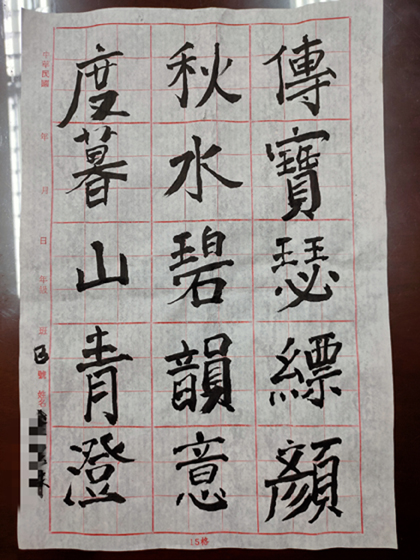 傳寶瑟縹顏
秋水碧韻意
度暮山青澄
中華民國 年 月 日 年級 班 號 姓名
15格